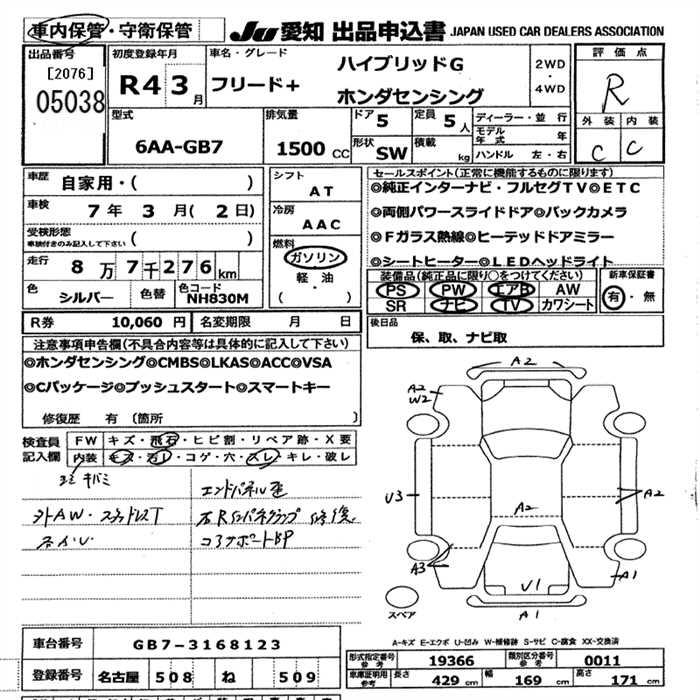 車内保管・守衛保管
JU 愛知 出品申込書 JAPAN USED CAR DEALERS ASSOCIATION
出品番号
[2076]
05038
初度登録年月
R4 3 月
車名・グレード
フリード+
ハイブリッドG
ホンダセンシング
2WD
・
4WD
評価点
R
外装 内装
C C
型式
6AA-GB7
排気量
1500 CC
ドア 5
定員 5 人
形状 SW
積載 kg
ディーラー・並行
モデル年式 年
ハンドル 左・右
車歴 自家用・( )
車検 7 年 3 月( 2 日)
受検形態
車検付きのみ記入して下さい ( )
走行 8 万 7 千 276 km
色 シルバー 色替 色コード NH830M
シフト
AT
冷房
AAC
燃料
ガソリン
軽・油
( )
セールスポイント(正常に機能するものに限ります)
◎純正インターナビ・フルセグTV◎ETC
◎両側パワースライドドア◎バックカメラ
◎Fガラス熱線◎ヒーテッドドアミラー
◎シートヒーター◎LEDヘッドライト
装備品(純正品に限り○をつけてください)
PS PW エアB AW
SR ナビ TV カワシート
新車保証書
有・無
R券 10,060 円 名変期限 月 日
後日品
保、取、ナビ取
注意事項申告欄(不具合内容等は具体的に記入して下さい)
◎ホンダセンシング◎CMBS◎LKAS◎ACC◎VSA
◎Cパッケージ◎プッシュスタート◎スマートキー
修復歴 有 〔箇所 〕
検査員記入欄
FW キズ・飛石・ヒビ割・リペア跡・X要
内装 キズ・汚レ・コゲ・穴・スレ・キレ・破レ
キバミ
外AW・スタッドレスT
エンドパネル歪
右Rインパネクランプ 修復
コアサポートBP
A2
A2
W2
U3
A2
A2
A3
U1
A1
A1
スペア
A-キズ E-エクボ U-凹み W-補修跡 S-サビ C-腐食 XX-交換済
車台番号 GB7-3168123
登録番号 名古屋 508 ね 509
形式指定番号 参考 19366 類別区分番号 参考 0011
車庫証明用 参考 長さ 429 cm 幅 169 cm 高さ 171 cm